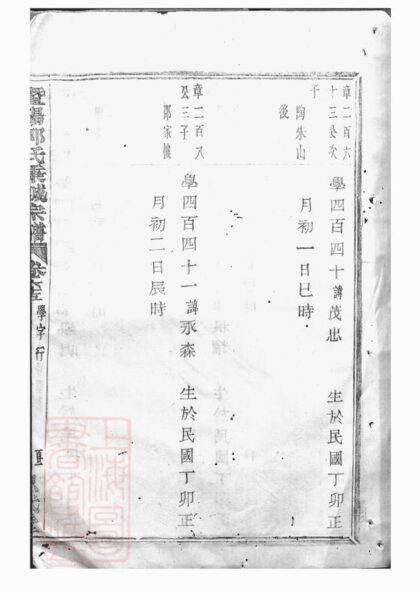 章二百六
十三公次
子
陶朱山
後
學四百四十諱茂忠 生於民國丁卯正
月初一日巳時
章二百又
公三子
邵家樓
學四百四十一諱永森 生於民國丁卯正
月初二日辰時
暨陽邱氏 宗譜 卷 學字行